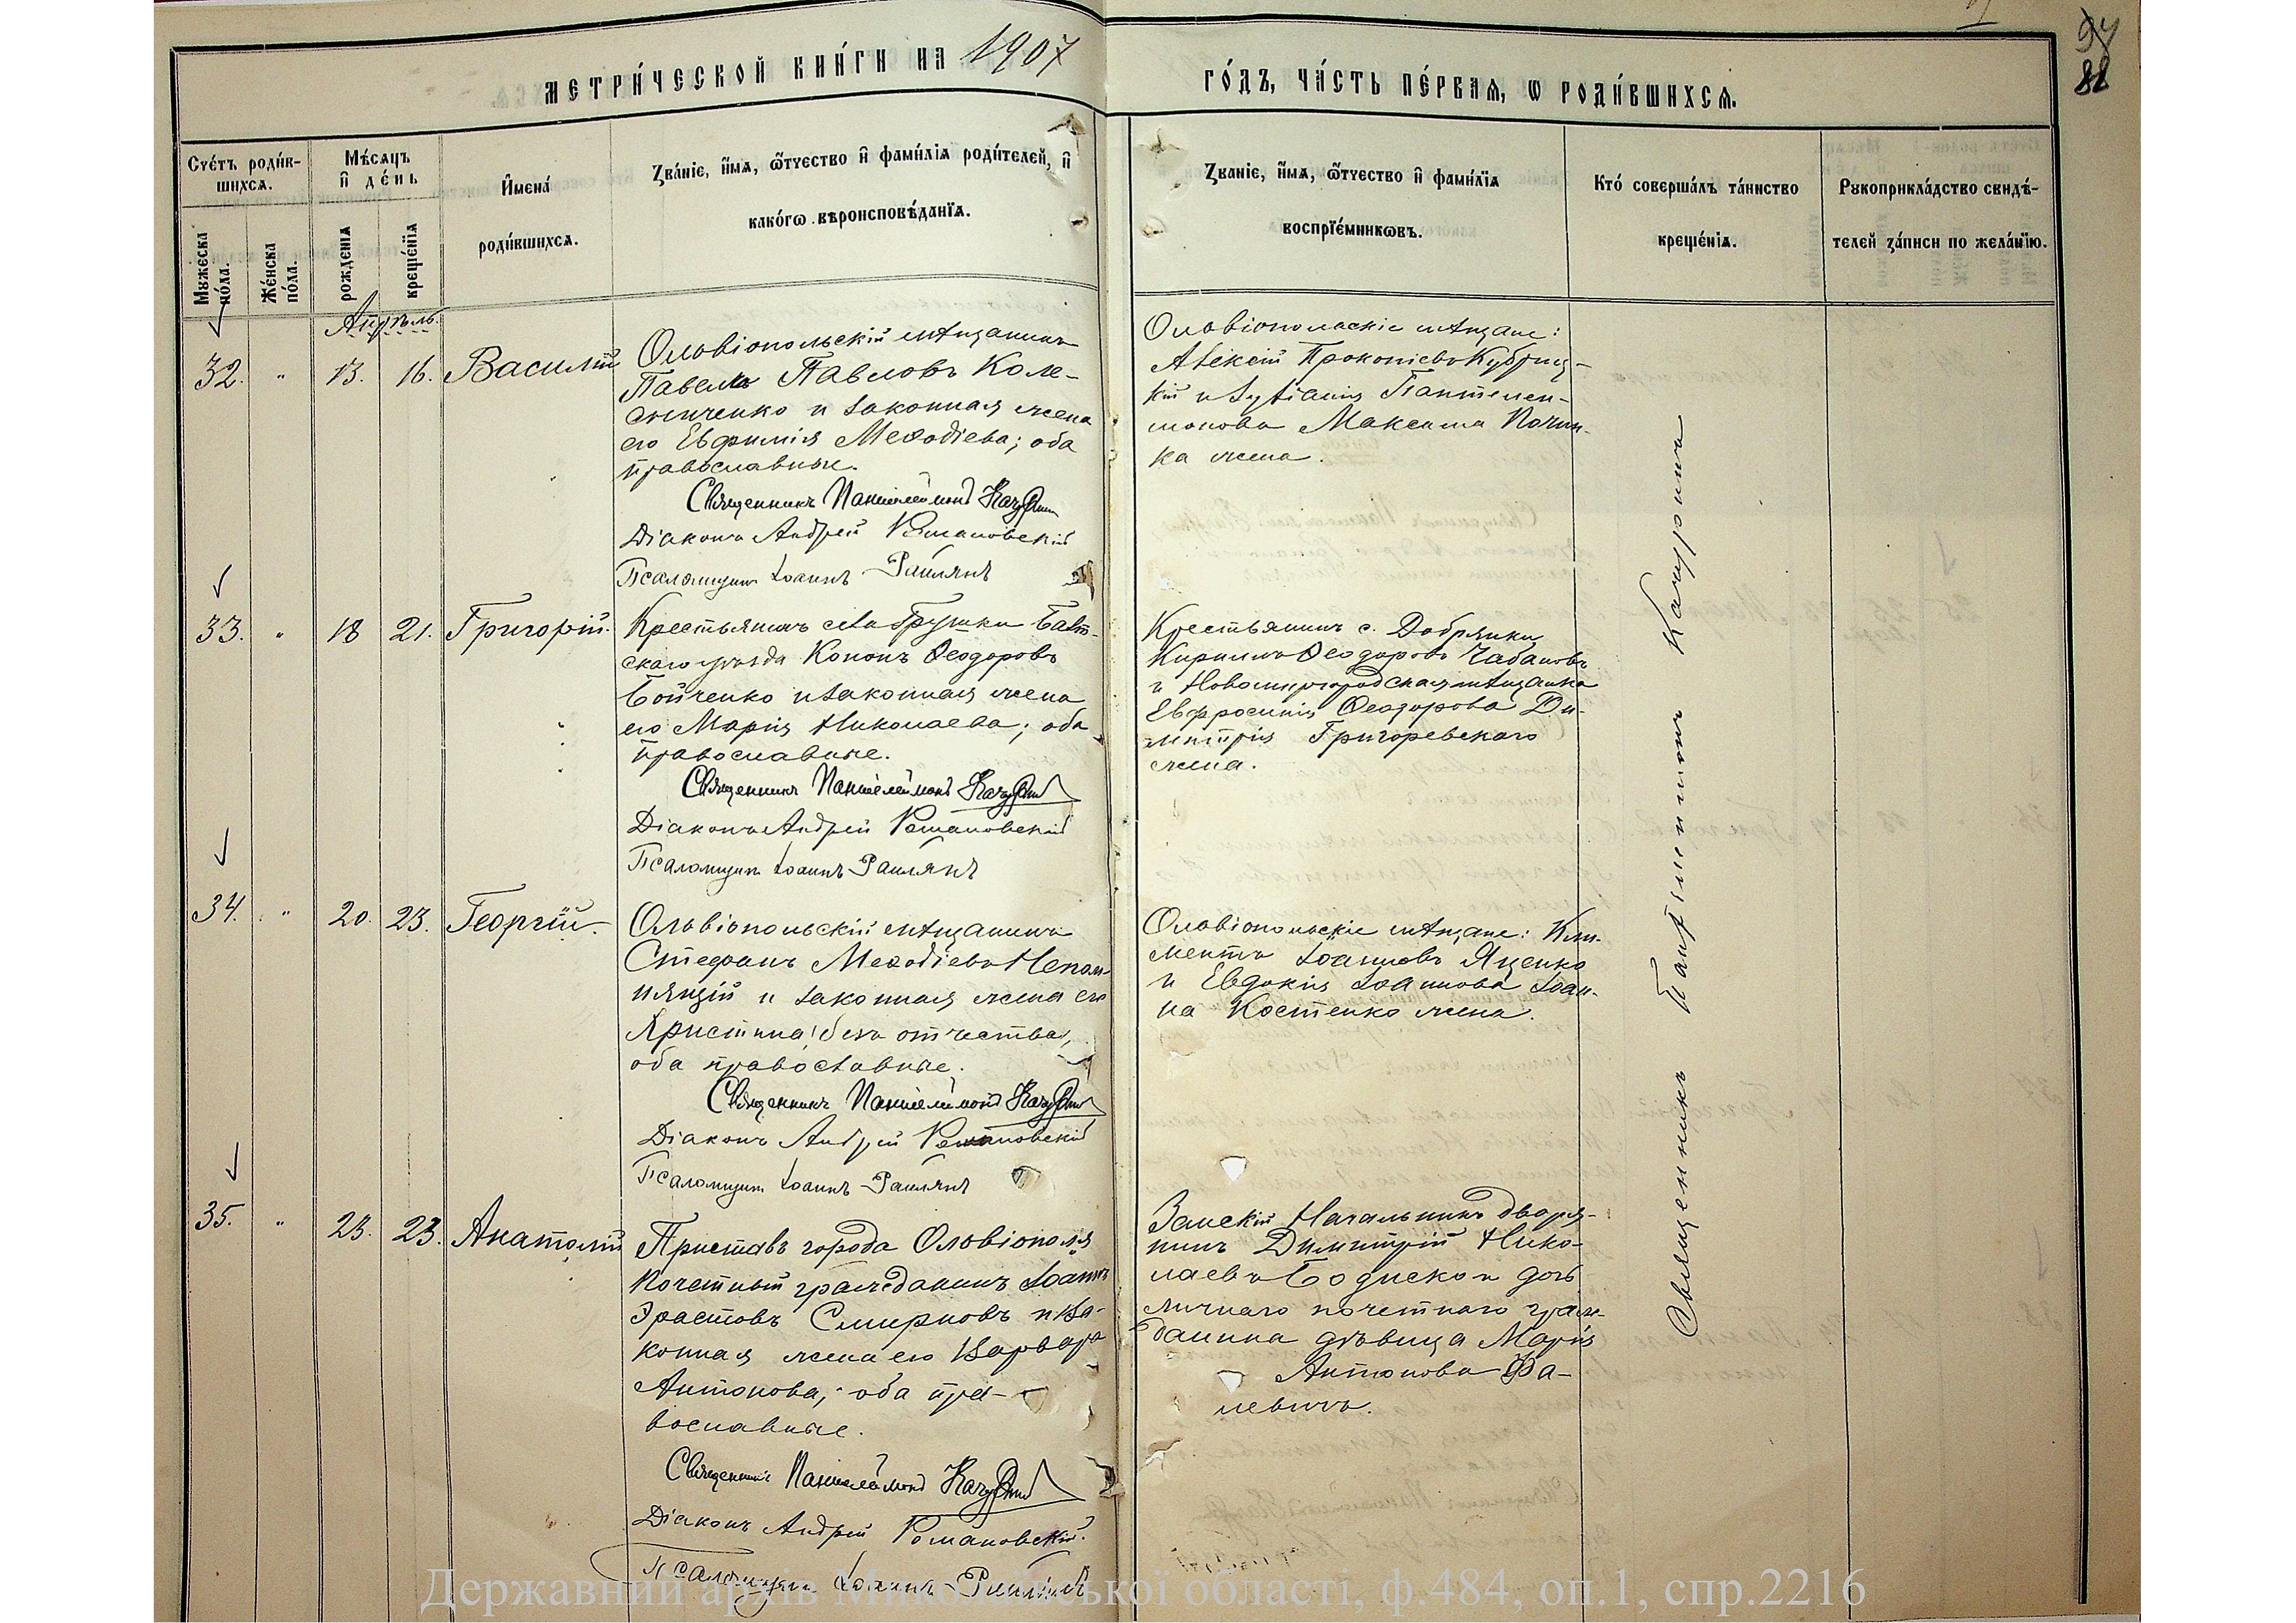 94
88
МЕТРИ́ЧЕСКОЙ КНИ́ГИ НА 1907 ГО́ДЪ, ЧА́СТЬ ПЕ́РВАѦ, Ѡ РОДИ́ВШИХСѦ.
Счéтъ роди́в-
шихсѧ.
Мꙋжеска по́ла.
Же́нска по́ла.
Мѣ́сѧцъ
и҆ де́нь
рожденїѧ
креще́нїѧ
И҆мена́
роди́вшихсѧ.
Зва́нїе, и҆́мѧ, ѻ҆́тчество и҆ фами́лїѧ роди́телей, и҆
како́гѡ вѣроисповѣ́данїѧ.
Зва́нїе, и҆́мѧ, ѻ҆́тчество и҆ фами́лїѧ
воспрїе́мникѡвъ.
Кто́ соверша́лъ та́инство
креще́нїѧ.
Рꙋкоприкла́дство свидѣ́-
телей за́писи по жела́нїю.
Апрѣль.
32. " 13. 16. Василій
Ольвіопольскій мѣщанинъ
Павелъ Павловъ Коле-
сниченко и законная жена
его Евфимія Меѳодіева; оба
православные.
Священникъ Пантелеймонъ Качурин
Діаконъ Андрей Романовскій
Псаломщикъ Іоаннъ Раилянъ
Ольвіопольскіе мѣщане:
Алексій Прокопіевъ Кубриц-
кій и Іуліанія Пантелеи-
монова Максима Почин-
ка жена.
33. " 18 21. Григорій.
Крестьянинъ села Грушки Балт-
скаго уѣзда Кононъ Ѳеодоровъ
Бойченко и законная жена
его Марія Николаева; оба
православные.
Священникъ Пантелеймонъ Качурин
Діаконъ Андрей Романовскій
Псаломщикъ Іоаннъ Раилянъ
Крестьянинъ с. Добрянки
Кириллъ Ѳеодоровъ Чабановъ
и Новомиргородская мѣщанка
Евфросинія Ѳеодорова Ди-
митрія Григоревскаго
жена.
34. " 20. 23. Георгій.
Ольвіопольскій мѣщанинъ
Стефанъ Меѳодіевъ Непом-
нящій и законная жена его
Христина, безъ отчества,
оба православные.
Священникъ Пантелеймонъ Качурин
Діаконъ Андрей Романовскій
Псаломщикъ Іоаннъ Раилянъ
Ольвіопольскіе мѣщане: Кли-
ментъ Іоанновъ Яценко
и Евдокія Іоаннова Іоан-
на Костенко жена.
35. " 23. 23. Анатолій
Приставъ города Ольвіополя
почетный гражданинъ Іоаннъ
Эрастовъ Смирновъ и за-
конная жена его Варвара
Антонова; оба пра-
вославные.
Священникъ Пантелеймонъ Качурин
Діаконъ Андрей Романовскій.
Псаломщикъ Іоаннъ Раилянъ
Земскій Начальникъ дворя-
нинъ Димитрій Нико-
лаевъ Бодиско и дочь
личнаго почетнаго граж-
данина дѣвица Марія
Антонова
Священникъ Пантелеимонъ Качуринъ
Державний архів Миколаївської області, ф.484, оп.1, спр.2216